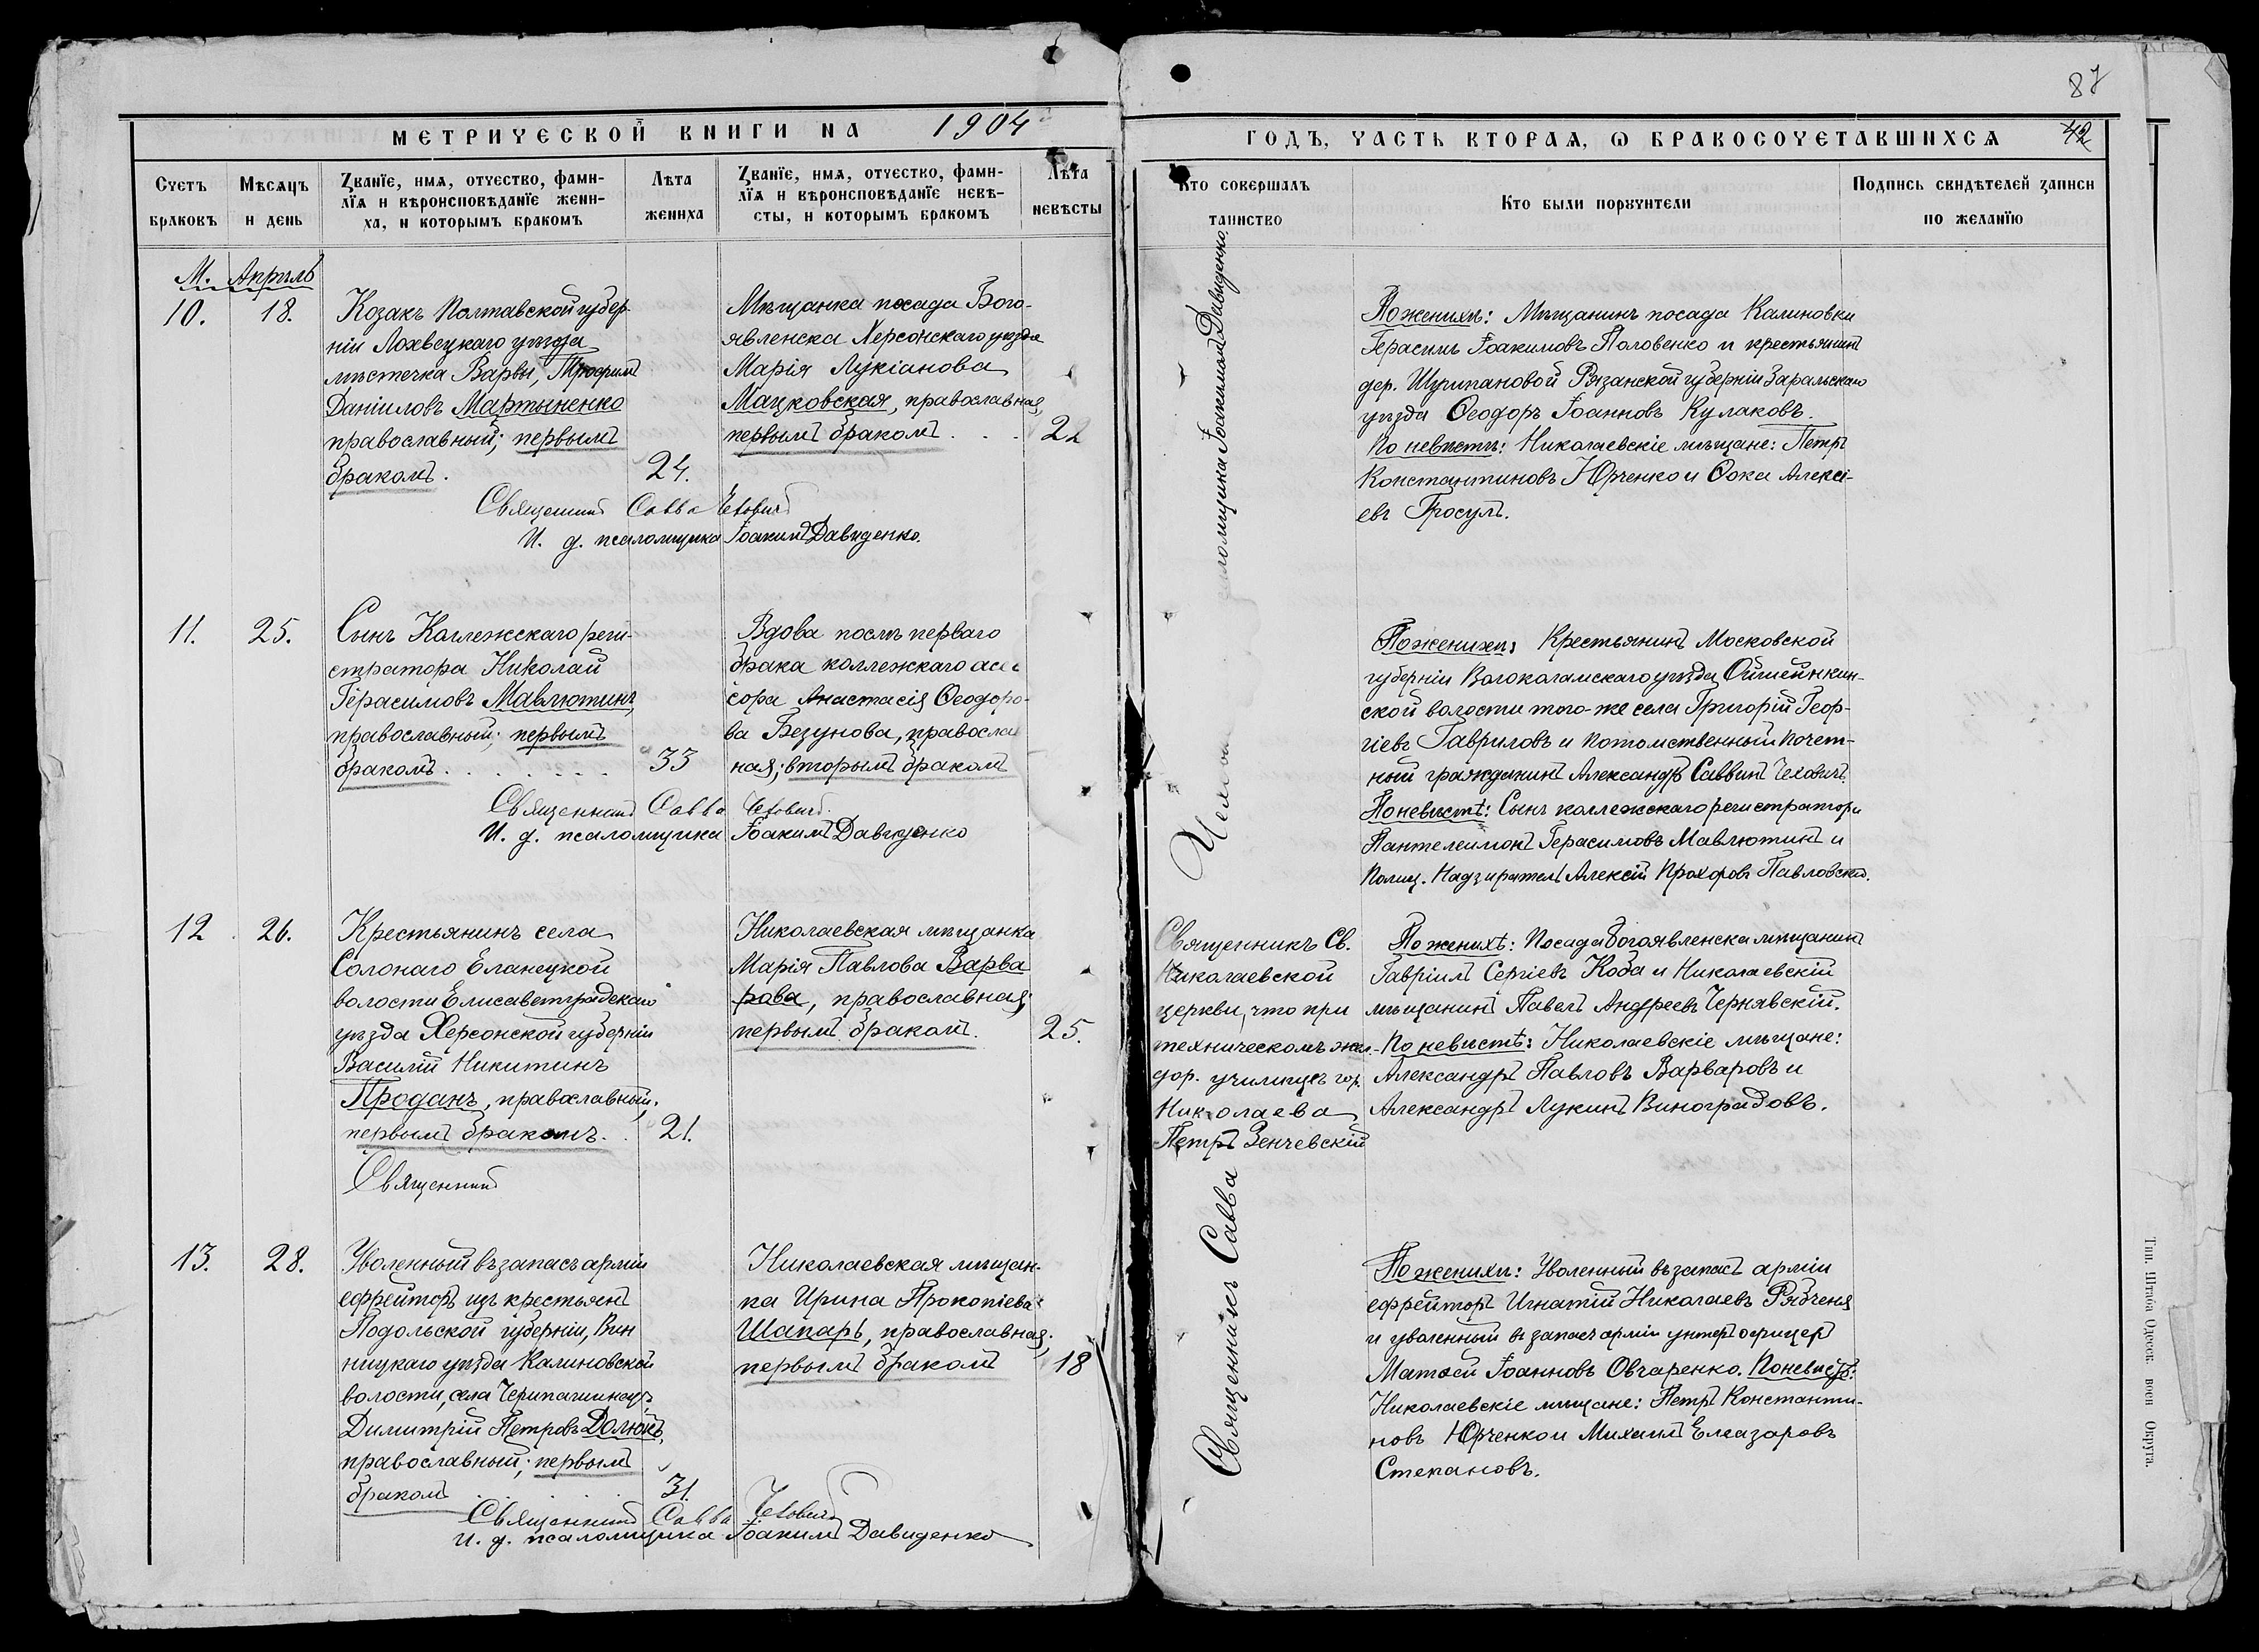 87
МЕТРИЧЕСКОЙ КНИГИ НА 1904
ГОДЪ, ЧАСТЬ ВТОРАѦ, Ѡ БРАКОСОЧЕТАВШИХСѦ 42
Счетъ браковъ
Мѣсяцъ и день
Званїе, имѧ, отчество, фами-
лїѧ и вѣроисповѣданїе жени-
ха, и которымъ бракомъ
Лѣта жениха
Званїе, имѧ, отчество, фами-
лїѧ и вѣроисповѣданїе невѣ-
сты, и которымъ бракомъ
Лѣта невѣсты
Кто совершалъ таинство
Кто были порꙋчители
Подпись свидѣтелей записи
по желанїю
М. Апрѣль
10. 18.
Козакъ Полтавской губер-
ніи Лохвецкаго уѣзда
мѣстечка Варвы, Трофимъ
Даніиловъ Мартыненко
православный; первымъ
бракомъ.
24.
Мѣщанка посада Бого-
явленска Херсонскаго уѣзда
Марія Лукіанова
Мацковская, православная,
первымъ бракомъ . . .
22
Священникъ Савва Чеховичъ
И. д. псаломщика Іоакимъ Давиденко.
По женихѣ: Мѣщанинъ посада Калиновки
Герасимъ Іоакимовъ Половенко и крестьянинъ
дер. Щурипановой Рязанской губерніи Заральскаго
уѣзда Ѳеодоръ Іоанновъ Кулаковъ.
По невѣстѣ: Николаевскіе мѣщане: Петръ
Константиновъ Юрченко и Ѳока Алексі-
евъ Гросулъ.
11. 25.
Сынъ Коллежскаго реги-
стратора Николай
Герасимовъ Мавлютинъ,
православный; первымъ
бракомъ . . . . . . .
33
Вдова послѣ перваго
брака коллежкаго асе
сора Анастасія Ѳеодоро-
ва Безунова, правосла
ная; вторымъ бракомъ
Священникъ Савва Чеховичъ.
И. д. псаломщика Іоакимъ Давиденко
По женихѣ: Крестьянинъ Московской
губерніи Волоколамскаго уѣзда Ошейкин-
ской волости того-же села Григорій Геор-
гіевъ Гавриловъ и потомственный почет-
ный гражданинъ Александръ Саввинъ Чеховичъ.
По невѣстѣ: Сынъ коллежскаго регистратора
Пантелеимонъ Герасимовъ Мавлютинъ и
Полиц. Надзиратель Алексій Прохоровъ Павловскій.
12. 26.
Крестьянинъ села
Солонаго Еланецкой
волости Елисаветградскаго
уѣзда Херсонской губерніи
Василій Никитинъ
Проданъ, православный;
первымъ бракомъ. .
21.
Священникъ
Николаевская мѣщанка
Марія Павлова Варва
рова, православная;
первымъ бракомъ.
25.
Священникъ Св.
Николаевской
церкви, что при
техническомъ жел.
дор. училищѣ гор.
Николаева
Петръ Зенчевскій
По женихѣ: Посада Богоявленска мѣщанинъ
Гавріилъ Сергіевъ Коба и Николаевскій
мѣщанинъ Павелъ Андреевъ Чернявскій.
По невѣстѣ: Николаевскіе мѣщане:
Александръ Павловъ Варваровъ и
Александръ Лукинъ Виноградовъ.
13. 28.
Уволенный въ запасъ арміи
ефрейторъ изъ крестьянъ
Подольской губерніи, Вин
ницкаго уѣзда Калиновской
волости, села
Димитрій Петровъ Долюкъ,
православный; первымъ
бракомъ . . . .
31.
Николаевская мѣщан-
ка Ирина Прокопіева
Шапарь, православная;
первымъ бракомъ
18
Священникъ Савва Чеховичъ
И. д. псаломщика Іоакимъ Давиденко
По женихѣ: Уволенный въ запасъ арміи
ефрейторъ Игнатій Николаевъ Рябченя
и уволенный въ запасъ арміи унтеръ офицеръ
Матѳей Іоанновъ Овчаренко. По невѣстѣ:
Николаевскіе мѣщане: Петръ Константи-
новъ Юрченко и Михаилъ Елеазаровъ
Степановъ.
Священникъ Савва
псаломщика Іоакимъ Давиденко.
Тип. Штаба Одесск. воен Округа.